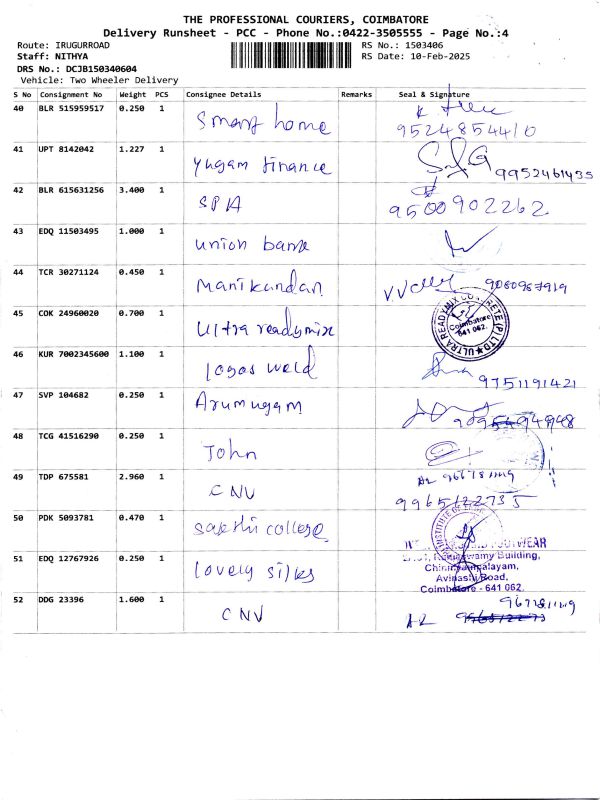 THE PROFESSIONAL COURIERS, COIMBATORE
Delivery Runsheet - PCC - Phone No.:0422-3505555 - Page No.:4
Route: IRUGURROAD
Staff: NITHYA
DRS No.: DCJB150340604
Vehicle: Two Wheeler Delivery
RS No.: 1503406
RS Date: 10-Feb-2025
S No Consignment No Weight PCS Consignee Details Remarks Seal & Signature
40 BLR 515959517 0.250 1 Smart home 9524854410
41 UPT 8142042 1.227 1 Yugam finance 9952461435
42 BLR 615631256 3.400 1 SPA 9500902262
43 EDQ 11503495 1.000 1 union bank
44 TCR 30271124 0.450 1 Manikandan 9080967919
45 COK 24960020 0.700 1 Ultra readymix ULTRA READYMIX CONCRETE (P) LTD Coimbatore 641 062.
46 KUR 7002345600 1.100 1 logos weld 9751191421
47 SVP 104682 0.250 1 Arumugam
48 TCG 41516290 0.250 1 John
49 TDP 675581 2.960 1 CNV 9965122735
50 PDK 5093781 0.470 1 sakthi college
51 EDQ 12767926 0.250 1 lovely silks
Building,
Chinniyampalayam,
Avinashi Road,
Coimbatore - 641 062.
52 DDG 23396 1.600 1 CNV